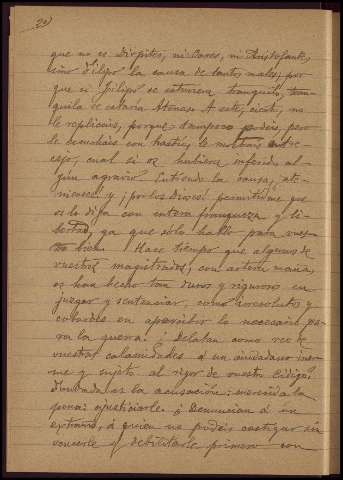 20
que no es Diópites, ni Cares, ni Aristofonte,
sino Filipo la causa de tantos males, por
que si Filipo se estuviera tranquilo, tran
quila se estaria Atenas. A este, cierto, no
le replicais, porque tampoco podeis, pero
le escuchais con hastio, le mostrais
cejo, cual si os hubiera inferido al-
gún agravio. Entiendo la causa, ate-
nienses! y ¡por los Dioses! permitidme que
os lo diga con entera franqueza y li-
bertad, ya que sólo hablo para vues-
tro bien. Hace tiempo que algunos de
vuestros magistrados, con astuta maña,
os han hecho tan duros y rigurosos en
juzgar y sentenciar, como irresolutos y
cobardes en apercibir lo necesario pa-
ra la guerra. ¿Delatan como reo de
vuestras calamidades á un ciudadano iner-
me y sujeto al rigor de vuestro código?
Fundada es la acusación; merecida la
pena: ajusticiarle. ¿Denuncian á un
extraño, á quien no podéis castigar sin
vencerle y debilitarle primero con